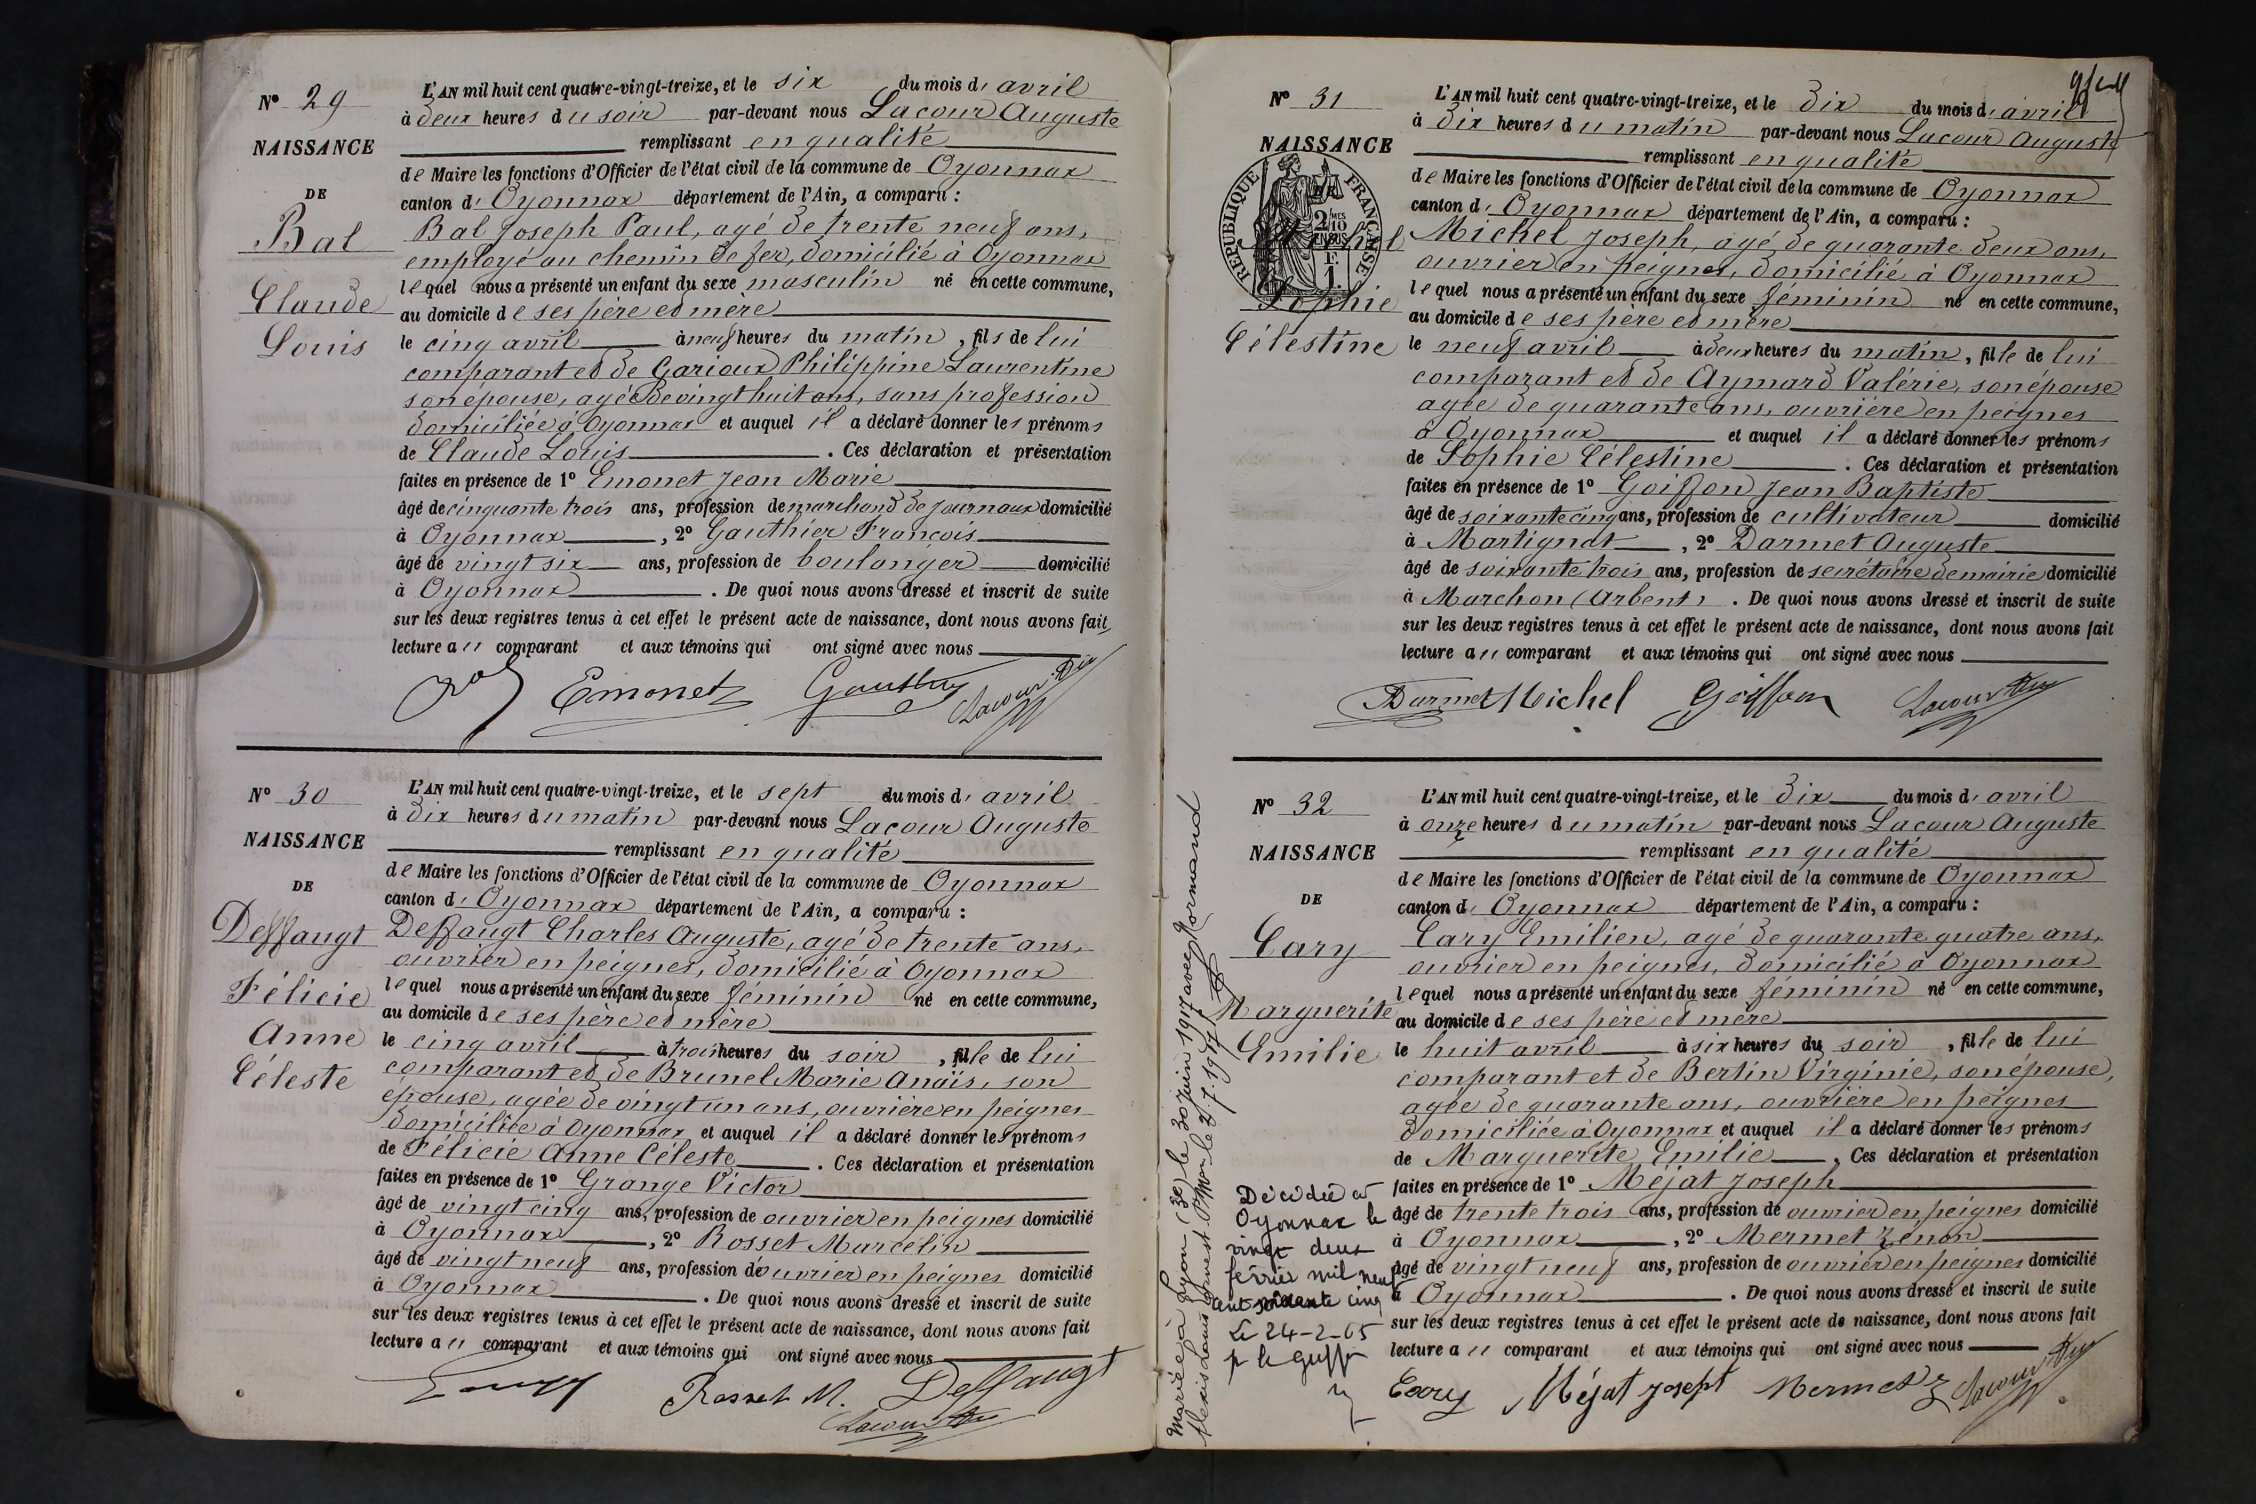 Nº 29
NAISSANCE
DE
Bal
Claude
Louis
L'AN mil huit cent quatre-vingt-treize, et le six du mois d' avril
à deux heures du soir par-devant nous Lacour Auguste
remplissant en qualité
de Maire les fonctions d'Officier de l'état civil de la commune de Oyonnax
canton d' Oyonnax département de l'Ain, a comparu :
Bal Joseph Paul, agé de trente neuf ans,
employé au chemin de fer, domicilié à Oyonnax
lequel nous a présenté un enfant du sexe masculin né en cette commune,
au domicile de ses père et mère
le cinq avril à neuf heures du matin, fils de lui
comparant et de Garioux Philippine Laurentine
son épouse, agée de vingt huit ans, sans profession
domiciliée à Oyonnax et auquel il a déclaré donner les prénoms
de Claude Louis. Ces déclaration et présentation
faites en présence de 1º Emonet Jean Marie
âgé de cinquante trois ans, profession de marchand de journaux domicilié
à Oyonnax, 2º Gauthier François
âgé de vingt six ans, profession de boulanger domicilié
à Oyonnax. De quoi nous avons dressé et inscrit de suite
sur les deux registres tenus à cet effet le présent acte de naissance, dont nous avons fait
lecture au comparant et aux témoins qui ont signé avec nous
Emonet Lacour
Nº 30
NAISSANCE
DE
Deffaugt
Félicie
Anne
Céleste
L'AN mil huit cent quatre-vingt-treize, et le sept du mois d' avril
à dix heures du matin par-devant nous Lacour Auguste
remplissant en qualité
de Maire les fonctions d'Officier de l'état civil de la commune de Oyonnax
canton d' Oyonnax département de l'Ain, a comparu :
Deffaugt Charles Auguste, agé de trente ans,
ouvrier en peignes, domicilié à Oyonnax
lequel nous a présenté un enfant du sexe féminin né en cette commune,
au domicile de ses père et mère
le cinq avril à trois heures du soir, fille de lui
comparant et de Brunel Marie Anaïs, son
épouse, agée de vingt un ans, ouvrière en peignes
domiciliée à Oyonnax et auquel il a déclaré donner les prénoms
de Félicie Anne Céleste. Ces déclaration et présentation
faites en présence de 1º Grange Victor
âgé de vingt cinq ans, profession de ouvrier en peignes domicilié
à Oyonnax, 2º Rosset Marcelin
âgé de vingt neuf ans, profession de ouvrier en peignes domicilié
à Oyonnax. De quoi nous avons dressé et inscrit de suite
sur les deux registres tenus à cet effet le présent acte de naissance, dont nous avons fait
lecture au comparant et aux témoins qui ont signé avec nous
Rosset M. Deffaugt
Lacour
Nº 31
NAISSANCE
DE
RÉPUBLIQUE FRANÇAISE
2 MES
10
EN SUS
F.
1.
Michel
Sophie
Célestine
L'AN mil huit cent quatre-vingt-treize, et le dix du mois d' avril
à dix heures du matin par-devant nous Lacour Auguste
remplissant en qualité
de Maire les fonctions d'Officier de l'état civil de la commune de Oyonnax
canton d' Oyonnax département de l'Ain, a comparu :
Michel Joseph, agé de quarante deux ans,
ouvrier en peignes, domicilié à Oyonnax
lequel nous a présenté un enfant du sexe féminin né en cette commune,
au domicile de ses père et mère
le neuf avril à deux heures du matin, fille de lui
comparant et de Aymard Valérie, son épouse
agée de quarante ans, ouvrière en peignes
à Oyonnax et auquel il a déclaré donner les prénoms
de Sophie Célestine. Ces déclaration et présentation
faites en présence de 1º Goiffon Jean Baptiste
âgé de soixante cinq ans, profession de cultivateur domicilié
à Martignat, 2º Darmet Auguste
âgé de soixante trois ans, profession de secrétaire de mairie domicilié
à Marchon (Arbent). De quoi nous avons dressé et inscrit de suite
sur les deux registres tenus à cet effet le présent acte de naissance, dont nous avons fait
lecture au comparant et aux témoins qui ont signé avec nous
Darmet Michel Goiffon Lacour
Nº 32
NAISSANCE
DE
Cary
Marguerite
Emilie
Mariée à Lyon (3e) le 30 juin 1917 avec Normand
Alexis Louis Ernest. Oyonnax le 2.7.1917
Décédée à
Oyonnax le
vingt deux
février mil neuf
cent soixante cinq
Le 24-2-65
L'AN mil huit cent quatre-vingt-treize, et le dix du mois d' avril
à onze heures du matin par-devant nous Lacour Auguste
remplissant en qualité
de Maire les fonctions d'Officier de l'état civil de la commune de Oyonnax
canton d' Oyonnax département de l'Ain, a comparu :
Cary Emilien, agé de quarante quatre ans,
ouvrier en peignes, domicilié à Oyonnax
lequel nous a présenté un enfant du sexe féminin né en cette commune,
au domicile de ses père et mère
le huit avril à six heures du soir, fille de lui
comparant et de Bertin Virginie, son épouse,
agée de quarante ans, ouvrière en peignes
domiciliée à Oyonnax et auquel il a déclaré donner les prénoms
de Marguerite Emilie. Ces déclaration et présentation
faites en présence de 1º Méjat Joseph
âgé de trente trois ans, profession de ouvrier en peignes domicilié
à Oyonnax, 2º Mermet Zénon
âgé de vingt neuf ans, profession de ouvrier en peignes domicilié
à Oyonnax. De quoi nous avons dressé et inscrit de suite
sur les deux registres tenus à cet effet le présent acte de naissance, dont nous avons fait
lecture au comparant et aux témoins qui ont signé avec nous
Cary Méjat Joseph Mermet Z Lacour